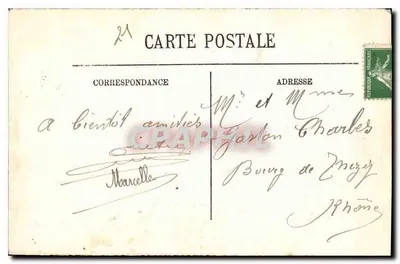 21
CARTE POSTALE
CORRESPONDANCE
ADRESSE
A bientôt amitiés
Marcelle
Mr et Mmes
Gaston Charles
Bourg de Thizy
Rhône